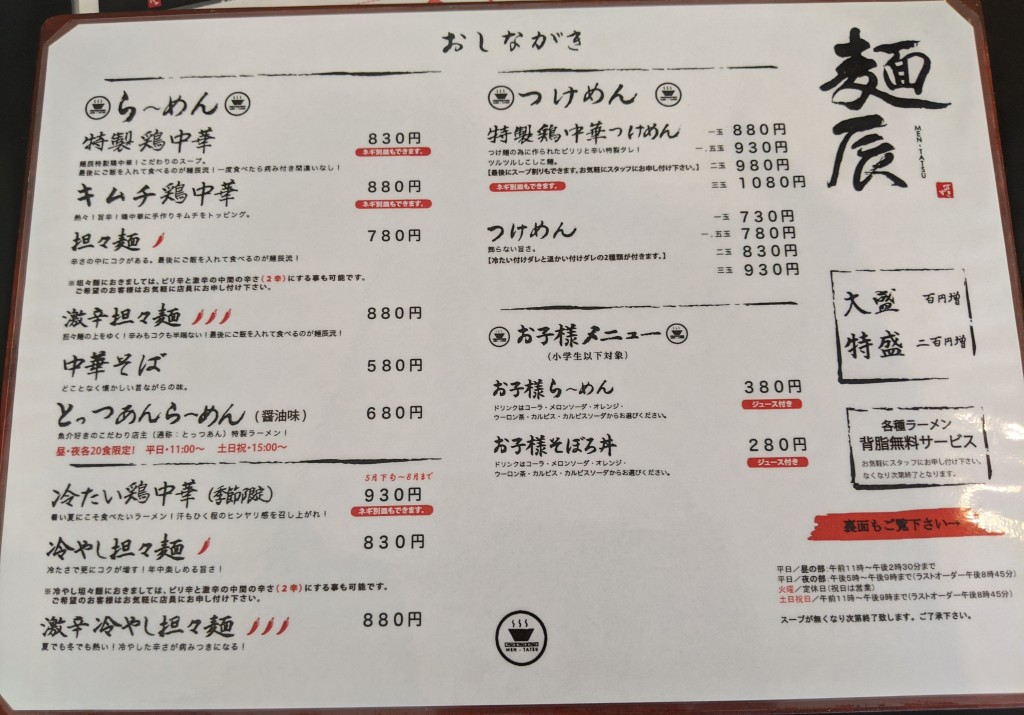 おしながき
ら〜めん
特製鶏中華 830円
ネギ別皿もできます。
麺辰特製鶏中華！こだわりのスープ。
最後にご飯を入れて食べるのが麺辰流！一度食べたら病み付き間違いなし！
キムチ鶏中華 880円
ネギ別皿もできます。
熱々！旨辛！鶏中華に手作りキムチをトッピング。
担々麺 780円
辛さの中にコクがある。最後にご飯を入れて食べるのが麺辰流！
※坦々麺におきましては、ピリ辛と激辛の中間の辛さ(2辛)にする事も可能です。
ご希望のお客様はお気軽に店員にお申し付け下さい。
激辛担々麺 880円
担々麺の上をゆく！辛みもコクも半端ない！最後にご飯を入れて食べるのが麺辰流！
中華そば 580円
どことなく懐かしい昔ながらの味。
とっつあんら〜めん（醤油味） 680円
魚介好きのこだわり店主（通称：とっつあん）特製ラーメン！
昼・夜各20食限定！ 平日・11:00〜 土日祝・15:00〜
5月下旬〜8月まで
冷たい鶏中華（季節限定） 930円
ネギ別皿もできます。
暑い夏にこそ食べたいラーメン！汗もひく程のヒンヤリ感を召し上がれ！
冷やし担々麺 830円
冷たさで更にコクが増す！年中楽しめる旨さ！
※冷やし坦々麺におきましては、ピリ辛と激辛の中間の辛さ(2辛)にする事も可能です。
ご希望のお客様はお気軽に店員にお申し付け下さい。
激辛冷やし担々麺 880円
夏でも冬でも熱い！冷やした辛さが病みつきになる！
つけめん
特製鶏中華つけめん 一玉 880円
つけ麺の為に作られたピリリと辛い特製ダレ！ 一.五玉 930円
ツルツルしこしこ麺。
【最後にスープ割りもできます。お気軽にスタッフにお申し付け下さい。】 二玉 980円
ネギ別皿もできます。 三玉 1080円
つけめん 一玉 730円
一.五玉 780円
飾らない旨さ。
【冷たい付けダレと温かい付けダレの2種類が付きます。】 二玉 830円
三玉 930円
お子様メニュー
（小学生以下対象）
お子様ら〜めん 380円
ジュース付き
ドリンクはコーラ・メロンソーダ・オレンジ・
ウーロン茶・カルピス・カルピスソーダからお選びください。
お子様そぼろ丼 280円
ジュース付き
ドリンクはコーラ・メロンソーダ・オレンジ・
ウーロン茶・カルピス・カルピスソーダからお選びください。
MEN・TATSU
麺辰
MEN・TATSU
大盛 百円増
特盛 二百円増
各種ラーメン
背脂無料サービス
お気軽にスタッフにお申し付け下さい。
なくなり次第終了となります。
裏面もご覧下さい→
平日／昼の部：午前11時〜午後2時30分まで
平日／夜の部：午後5時〜午後9時まで(ラストオーダー午後8時45分)
火曜／定休日(祝日は営業)
土日祝日／午前11時〜午後9時まで(ラストオーダー午後8時45分)
スープが無くなり次第終了致します。ご了承下さい。